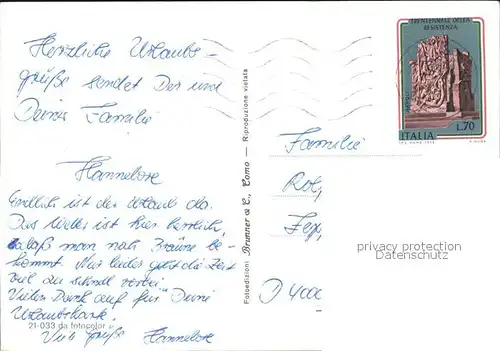 Herzliche Urlaubs-
grüße sendet Dir und
Deiner Familie
Hannelore
Endlich ist der Urlaub da.
Das Wetter ist hier herrlich,
sodaß man nah Bräune be-
kommt. Nur leider geht die Zeit
viel zu schnell vorbei.
Vielen Dank auf für Deine
Urlaubskarte.
21-033 da fotocolor
Viele Grüße Hannelore
Fotoedizioni Brunner & C., Como — Riproduzione vietata
TRENTENNALE DELLA
RESISTENZA
ITALIA
L.70
Familie
Rol,
Fex,
privacy protection
Datenschutz
D 4000